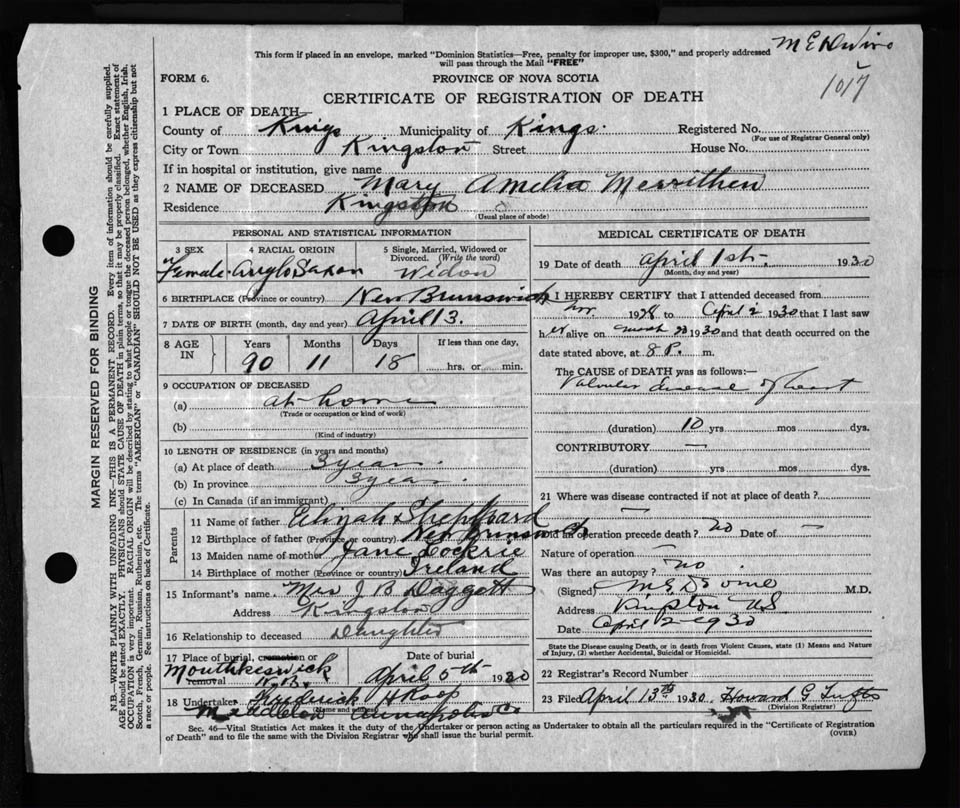 This form if placed in an envelope, marked "Dominion Statistics—Free, penalty for improper use, $300," and properly addressed
will pass through the Mail "FREE"
1017
FORM 6.
PROVINCE OF NOVA SCOTIA
CERTIFICATE OF REGISTRATION OF DEATH
1 PLACE OF DEATH—
County of Kings Municipality of Kings. Registered No.
(For use of Registrar General only)
City or Town Kingston Street House No.
If in hospital or institution, give name
2 NAME OF DECEASED Mary Amelia Merrithew
Residence Kingston
(Usual place of abode)
PERSONAL AND STATISTICAL INFORMATION
3 SEX 4 RACIAL ORIGIN 5 Single, Married, Widowed or Divorced. (Write the word)
Female Anglo Saxon Widow
6 BIRTHPLACE (Province or country) New Brunswick
7 DATE OF BIRTH (month, day and year) April 13.
8 AGE IN Years Months Days If less than one day,
90 11 18 hrs. or min.
9 OCCUPATION OF DECEASED
(a) at home
(Trade or occupation or kind of work)
(b)
(Kind of industry)
10 LENGTH OF RESIDENCE (in years and months)
(a) At place of death 3 year
(b) In province 3 year
(c) In Canada (if an immigrant)
Parents
11 Name of father Elijah Sheppard
12 Birthplace of father (Province or country) New Brunswick
13 Maiden name of mother Jane Lockrie
14 Birthplace of mother (Province or country) Ireland
15 Informant's name Mrs J B Daggett
Address Kingston
16 Relationship to deceased Daughter
17 Place of burial, cremation or removal Date of burial
Mouthkeswick N.B. April 5th 1930
18 Undertaker Frederick H Roop
(Name and address)
Middleton Annapolis Co
MEDICAL CERTIFICATE OF DEATH
19 Date of death April 1st 1930
(Month, day and year)
I HEREBY CERTIFY that I attended deceased from
1928 to April 2 1930 that I last saw
her alive on March 1930 and that death occurred on
date stated above, at 8 P. m.
The CAUSE of DEATH was as follows:—
Valvular disease of heart
(duration) 10 yrs. mos. dys.
CONTRIBUTORY —
(duration) yrs. mos. dys.
21 Where was disease contracted if not at place of death? —
Did an operation precede death? no Date of —
Nature of operation —
Was there an autopsy? no
(Signed) M.D.
Address Kingston NS
Date April 2 1930
State the Disease causing Death, or in death from Violent Causes, state (1) Means and
Nature of Injury, (2) whether Accidental, Suicidal or Homicidal.
22 Registrar's Record Number
23 Filed April 13th 1930 Howard G Tufts
(Division Registrar)
Sec. 46—Vital Statistics Act makes it the duty of the Undertaker or person acting as Undertaker to obtain all the particulars required in the "Certificate of Registration
of Death" and to file the same with the Division Registrar who shall issue the burial permit. (OVER)
MARGIN RESERVED FOR BINDING
N.B.—WRITE PLAINLY WITH UNFADING INK—THIS IS A PERMANENT RECORD. Every item of information should be carefully supplied.
AGE should be stated EXACTLY. PHYSICIANS should STATE CAUSE OF DEATH in plain terms, so that it may be properly classified. Exact statement of
OCCUPATION is very important. RACIAL ORIGIN will be described by stating to what people or tongue the deceased person belonged, whether English, Irish,
Scotch, French, German, Russian, Ruthenian, etc. The terms "AMERICAN" or "CANADIAN" SHOULD NOT BE USED as they express citizenship but not
a race or people. See instructions on back of Certificate.